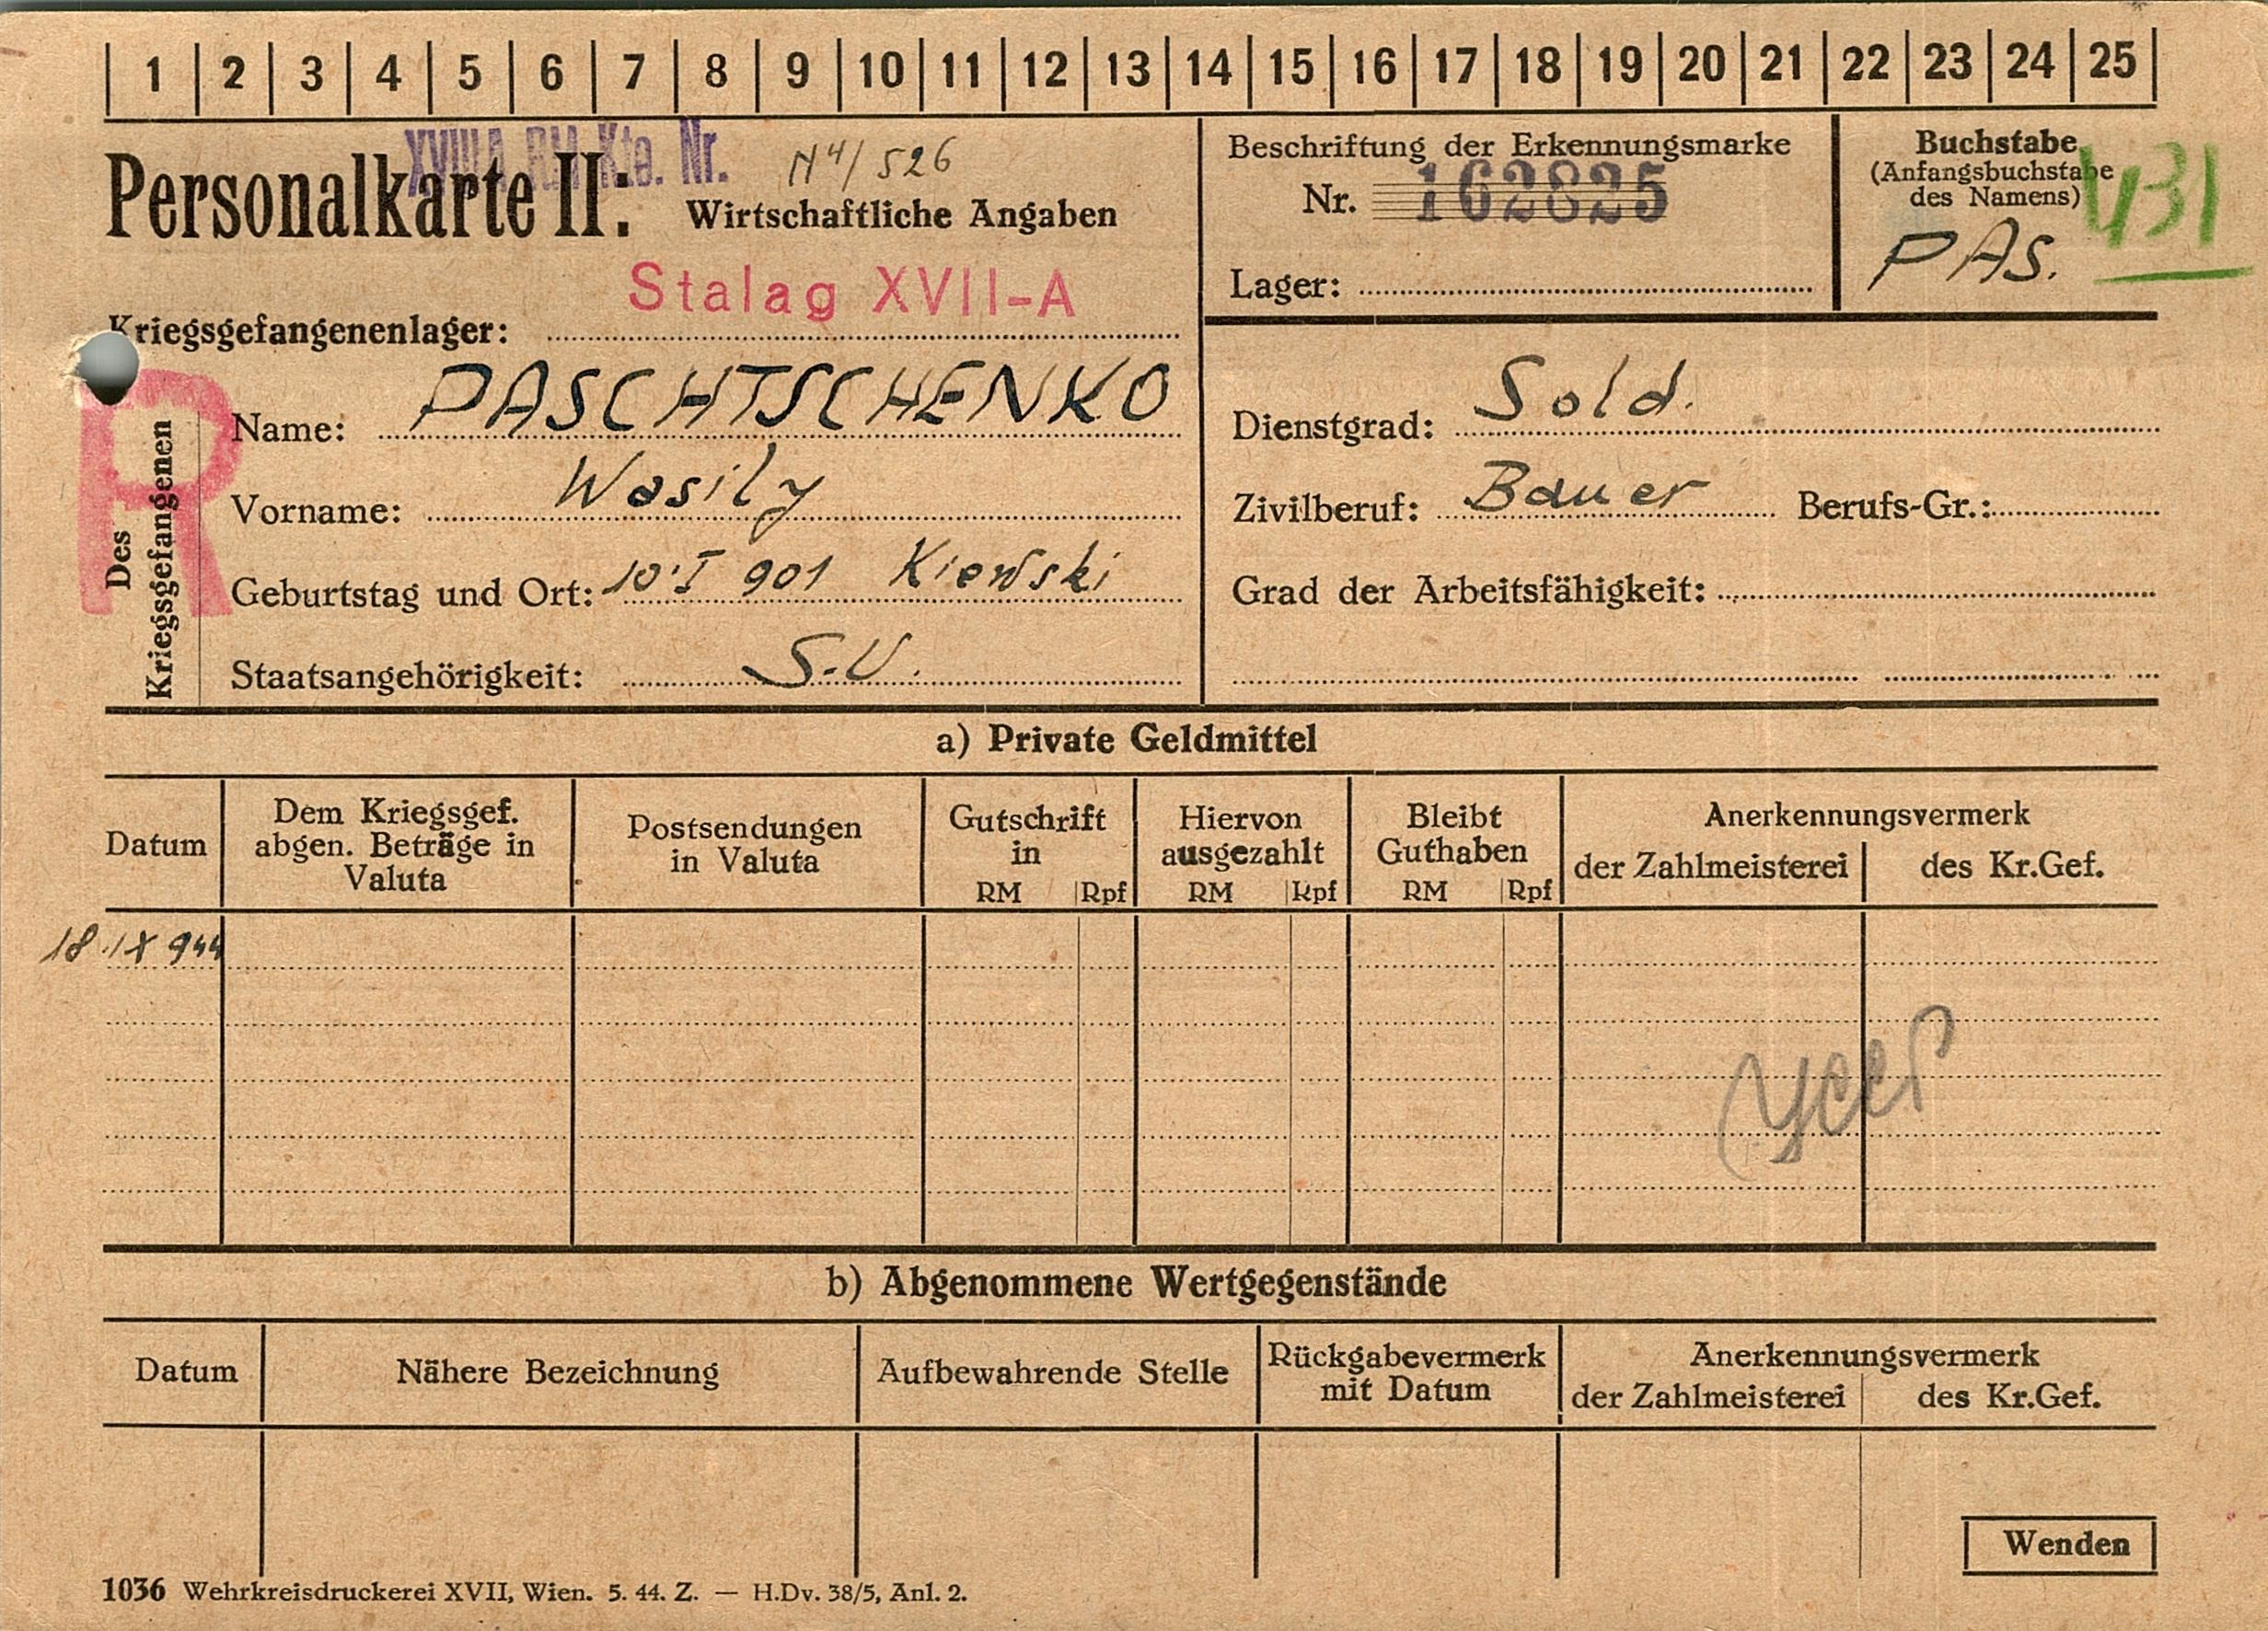 1 2 3 4 5 6 7 8 9 10 11 12 13 14 15 16 17 18 19 20 21 22 23 24 25
XVIII A RM Kte. Nr. N4/526
Personalkarte II: Wirtschaftliche Angaben
Stalag XVII-A
Kriegsgefangenenlager:
Beschriftung der Erkennungsmarke
Nr. 162825
Lager:
Buchstabe
(Anfangsbuchstabe
des Namens)
431
PAS.
R
Des
Kriegsgefangenen
Name: PASCHTSCHENKO
Vorname: Wasily
Geburtstag und Ort: 10.I 901 Kiewski
Staatsangehörigkeit: S.U.
Dienstgrad: Sold.
Zivilberuf: Bauer Berufs-Gr.:
Grad der Arbeitsfähigkeit:
a) Private Geldmittel
Datum
Dem Kriegsgef.
abgen. Beträge in
Valuta
Postsendungen
in Valuta
Gutschrift
in
RM Rpf
Hiervon
ausgezahlt
RM Rpf
Bleibt
Guthaben
RM Rpf
Anerkennungsvermerk
der Zahlmeisterei des Kr.Gef.
18.IX 944
b) Abgenommene Wertgegenstände
Datum
Nähere Bezeichnung
Aufbewahrende Stelle
Rückgabevermerk
mit Datum
Anerkennungsvermerk
der Zahlmeisterei des Kr.Gef.
Wenden
1036 Wehrkreisdruckerei XVII, Wien. 5. 44. Z. — H.Dv. 38/5, Anl. 2.